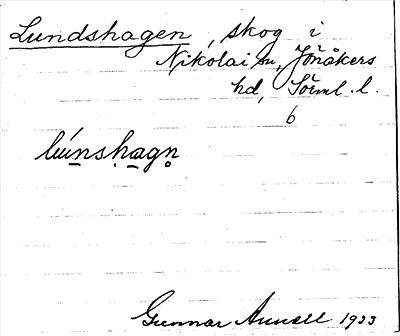 Lundshagen, skog i
Nikolai sn, Jönåkers
hd, Söml. l.
6
lúnshagn
Gunnar 1933